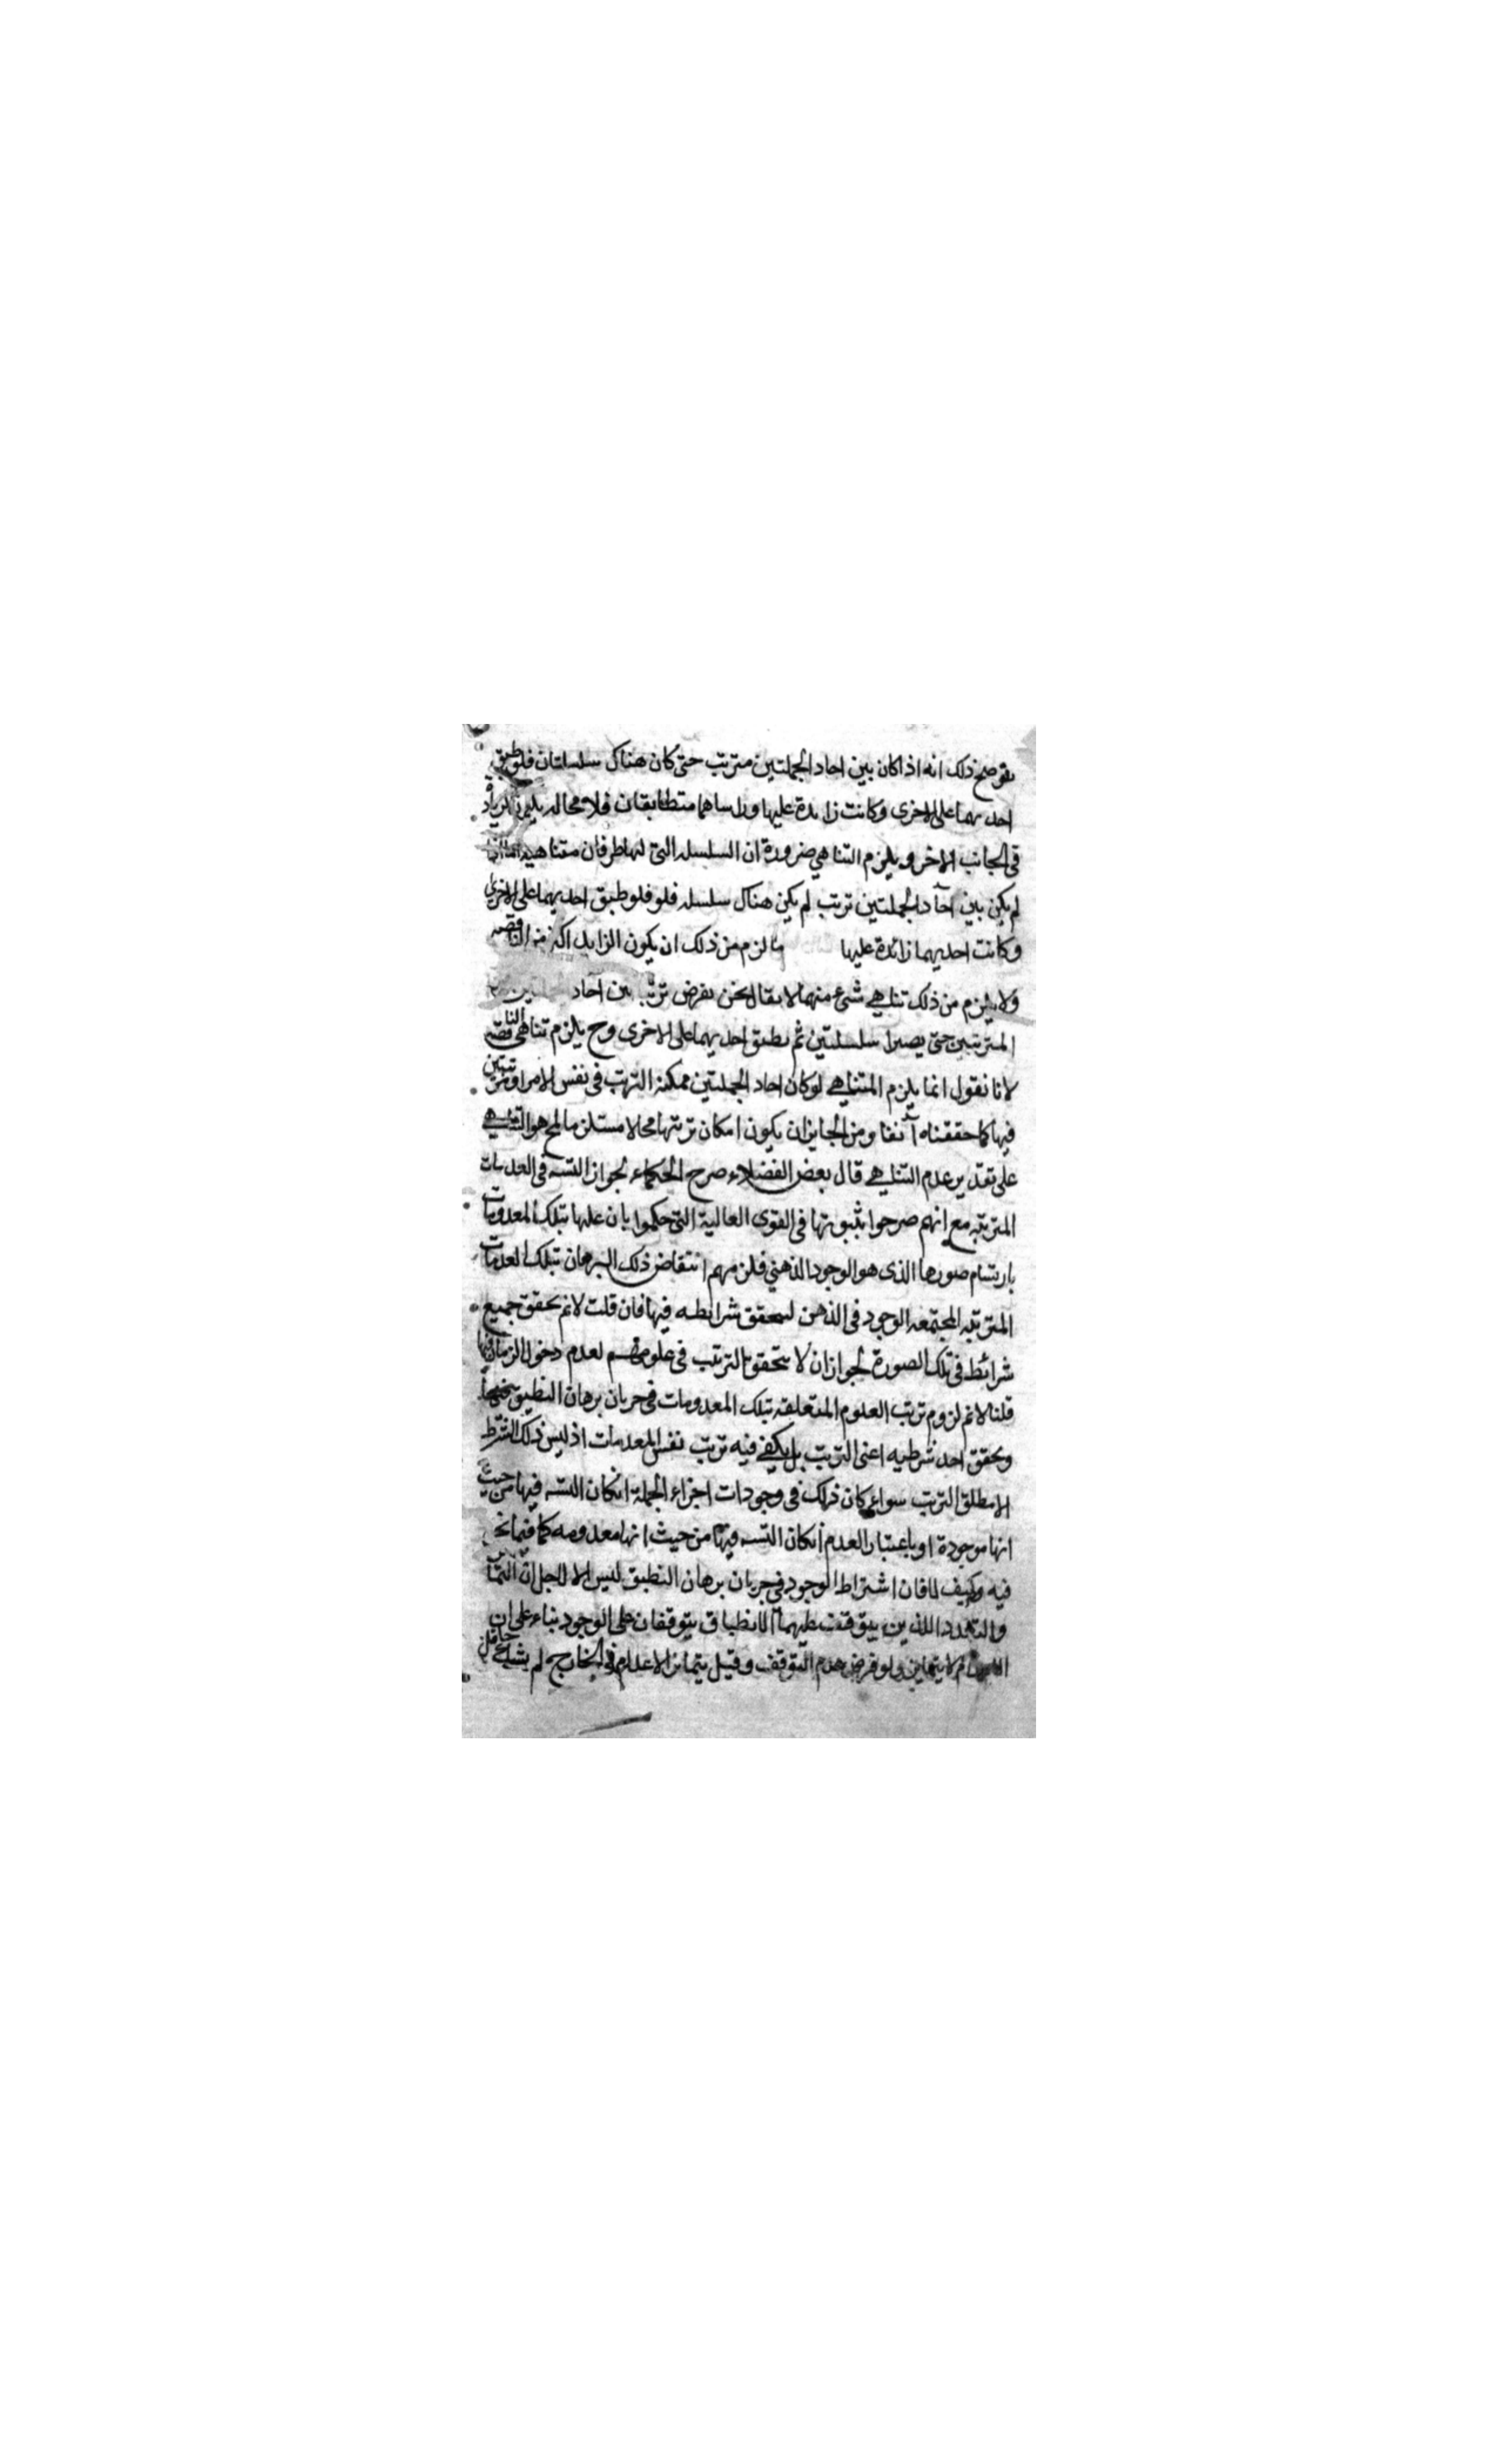 توضح ذلك انه اذا كان بين احاد الجملتين مترتب حتى كان هناك سلسلتان فلو طبق
احديهما على الاخرى وكانت زايدة عليها وراساهما متطابقان فلا محاله يلزم الزيادة
فى الجانب الاخر ويلزم التناهي ضرورة ان السلسله التى لها طرفان متناهيه
لم يكن بين آحاد الجملتين ترتب لم يكن هناك سلسله فلو فلو طبق احديهما على الاخرى
وكانت احديهما زائدة عليها ما لزم من ذلك ان يكون الزايد اكثر من الناقصه
ولا يلزم من ذلك تناهي شىء منهما لا يقال نحن نفرض ترتب بين احاد
المترتبين حتى يصيرا سلسلتين ثم نطبق احديهما على الاخرى وح يلزم تناهى الناقصه
لانا نقول انما يلزم المتناهي لو كان احاد الجملتين ممكنه الترتب فى نفس الامر
فيها كما حققناه آنفا ومن الجايز ان يكون امكان ترتبها محالا مستلزما لمح هو التناهي
على تقدير عدم التناهي قال بعض الفضلاء صرح الحكماء بجواز التسه فى العدميات
المترتبه مع انهم صرحوا بثبوتها فى القوى العالية التى حكموا بان علمها بتلك المعدومات
بارتسام صورها الذى هو الوجود الذهني فلزمهم انتقاض ذلك البرهان بتلك العدميات
المترتبه المجتمعه الوجود فى الذهن لتحقق شرائطه فيها فان قلت لانم تحقق جميع
شرائط فى تلك الصورة لجواز ان لا يتحقق الترتب فى علومهم لعدم دخول الزمان فيها
قلنا لانم لزوم ترتب العلوم المتعلقه بتلك المعدومات فى جريان برهان التطبيق
وتحقق احد شرطيه اعنى الترتب بل يكفي فيه ترتب نفس المعدمات اذ ليس ذلك الشرط
الا مطلق الترتب سواء كان ذلك فى وجودات اجزاء الجملة ان كان التسه فيها من حيث
انها موجودة او باعتبار العدم ان كان التسه فيها من حيث انها معدومه كما فيما نحن
فيه وكيف لا فان اشتراط الوجود فى جريان برهان التطبيق ليس الا لاجل ان التمايز
والتعدد اللذين يتوقف عليهما الانطباق يتوقفان على الوجود بناء على ان
الاعدام لا يتمايز ولو فرض عدم التوقف وقيل بتمايز الاعدام فى الخارج لم يشك عاقل